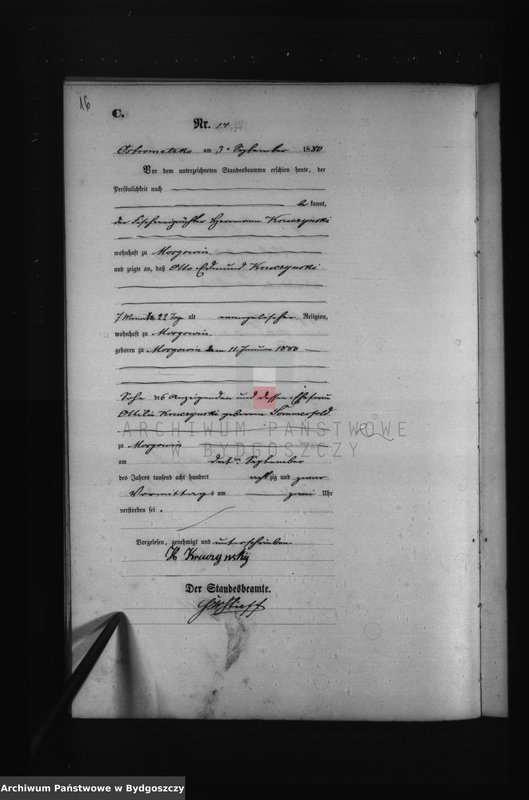 16
C.
Nr. 14
Ostrometzko am 3. September 1880
Vor dem unterzeichneten Standesbeamten erschien heute, der
Persönlichkeit nach
be kannt,
der Fischereipächter Herrmann Kruczynski
wohnhaft zu Morgowin
und zeigte an, daß Otto Edmund Kruczynski
7 Monate 22 Tage alt evangelischer Religion,
wohnhaft zu Morgowin,
geboren zu Morgowin den 11. Januar 1880
Sohn des Anzeigenden und dessen Ehefrau
Ottilie Kruczynski geborene Sommerfeld
zu Morgowin
am September
des Jahres tausend acht hundert achtzig und zwar
Vormittags um zwei Uhr
verstorben sei.
Vorgelesen, genehmigt und unterschrieben
H Kruczynsky
Der Standesbeamte.
ARCHIWUM PAŃSTWOWE
W BYDGOSZCZY
Archiwum Państwowe w Bydgoszczy